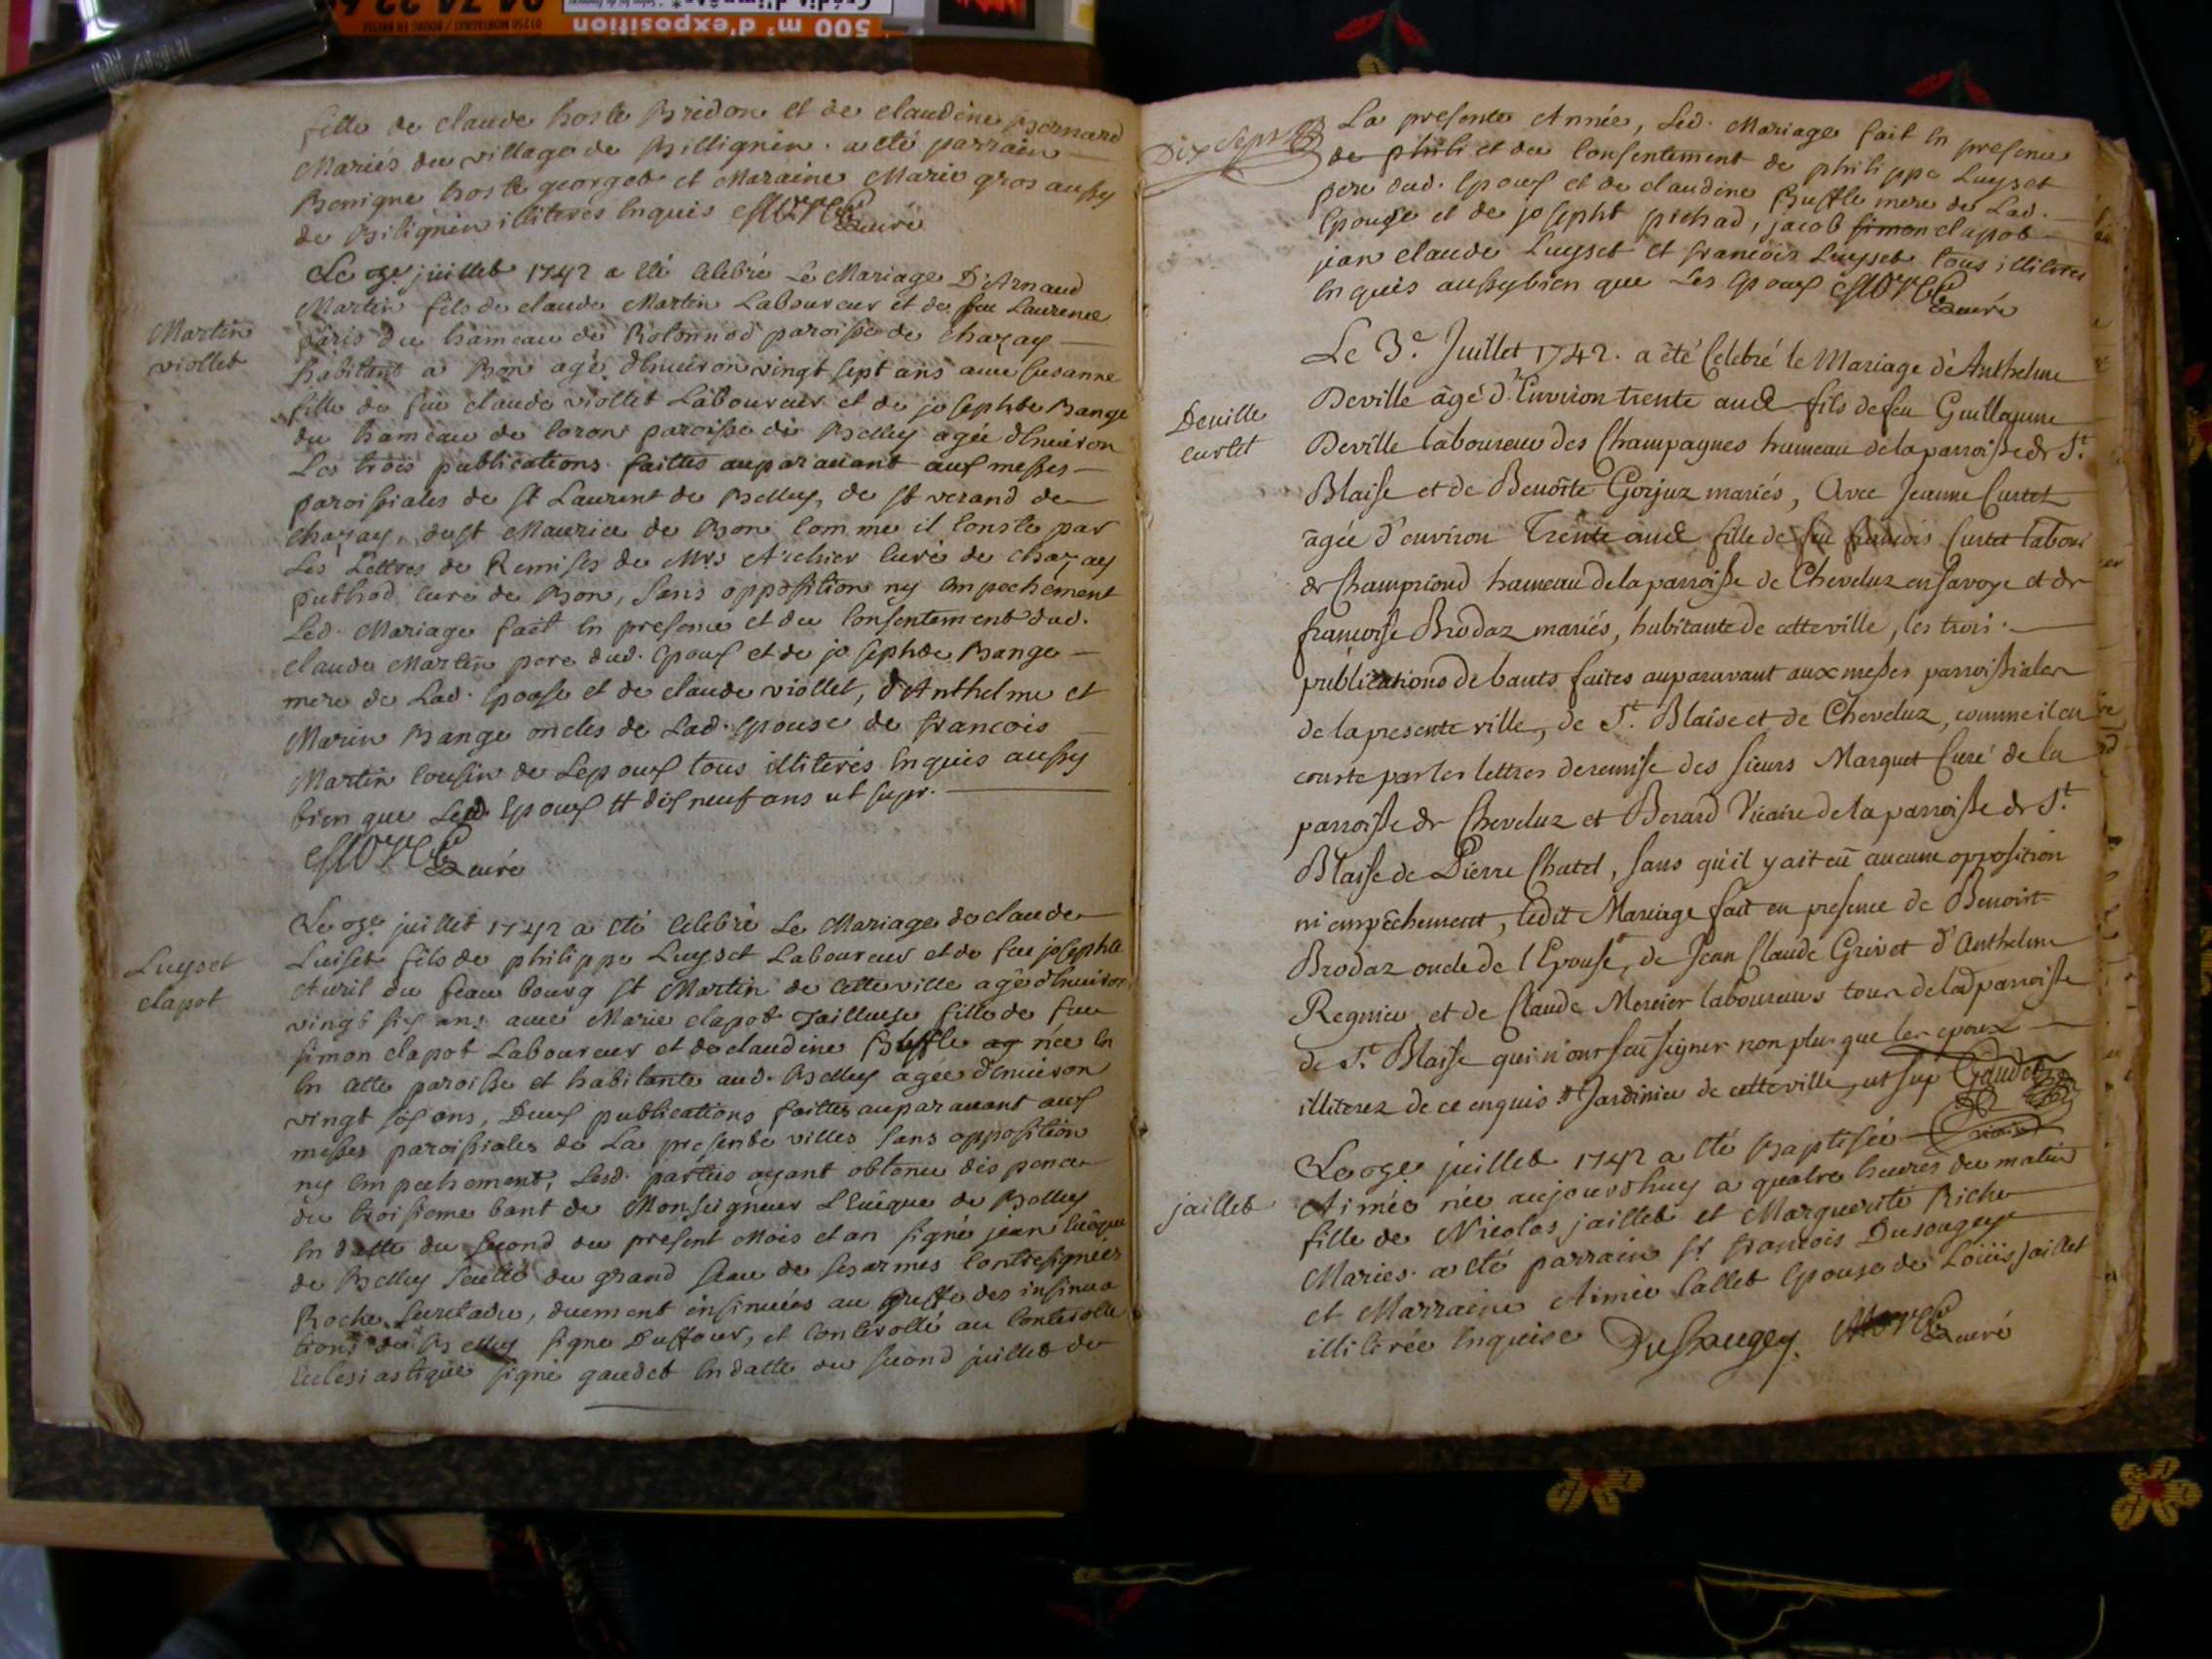 500 m² d'exposition
fille de claude hoste Bridon et de claudine Bernard
Mariés du village de Billignin. a été parrain
Benigne hoste georget et Maraine Marie gros aussy
de Bilignin illiterés Enquis curé
Martin
viollet
Le 3e. juillet 1742 a été Celebré Le Mariage D'Arnaud
Martin fils de claude Martin Laboureur et de feu Laurence
paris du hameau de Rotonnod paroisse de chazay
habitant a Bon agé d'Environ vingt sept ans avec Susanne
fille de feu claude viollet Laboureur et de josephte Bange
du hameau de Coron paroisse de Belley agée d'Environ
Les trois publications faittes auparavant aux messes
paroissiales de st Laurent de Belley, de st verand de
chazay, de st Maurice de Bon Comme il Conste par
Les Lettres de Remises de Mrs Archier Curé de chazay
puthod curé de Bon, Sans opposition ny Empechement
Led. Mariage fait En presence et du Consentement dud.
claude Martin pere dud. Epoux et de josephte Bange
mere de Lad. Epouse et de claude viollet, d'Anthelme et
Marin Bange oncles de Lad. Epouse de francois
Martin Cousin de Lepoux tous illiterés Enquis aussy
bien que Led. Epoux # dix neuf ans ut supr.
curé
Luyset
clapot
Le 3e. juillet 1742 a été Celebré Le Mariage de claude
Luiset fils de philippe Luyset Laboureur et de feu josephte
Avril du feau bourg st Martin de Cette ville agé d'Environ
vingt six ans avec Marie clapot Tailleuse fille de feu
simon clapot Laboureur et de claudine Buffle ag née En
En Cette paroisse et habitante aud. Belley agée d'Environ
vingt six ans, Deux publications faittes auparavant aux
messes paroissiales de La presente villes Sans opposition
ny Empechement, Lesd. parties ayant obtenu dispence
du troisieme bant de Monseigneur L'Eveque de Belley
En datte du second du present Mois et an signé jean Evêque
de Belley Scellé du grand sceau de ses armes Contresignées
Roche Secretaire, duement insinuées au greffe des insinua
tions de Belley signe Duffour, et Contrôllé au Contrôlle
Ecclesiastique signé gaudet En datte du second juillet de
Dix Sept
La presente Année, Led. Mariage fait En presence
de phili et du Consentement de philippe Luyset
pere dud. Epoux et de claudine Buffle mere de Lad.
Epouse et de josepht pichad, jacob simon clapot
jean claude Luyset et francois Luyset tous illiterés
Enquis aussybien que Les Epoux curé
Deville
Curtet
Le 3e. Juillet 1742. a été Celebré le Mariage d'Anthelme
Deville âgé d'Environ trente ans fils de feu Guillaume
Deville laboureur des Champagnes hameau de la parroisse de St.
Blaise et de Benoîte Gorjuz mariés, Avec Jeanne Curtet
âgée d'environ Trente ans fille de feu francois Curtet labour
de Champriond hameau de la parroisse de Cheveluz en Savoye et de
francoise Brodaz mariés, habitante de cette ville, les trois
publications de bants faites auparavant aux messes parroissiales
de la presente ville, de St. Blaise et de Cheveluz, comme il en
conste par les lettres de remise des sieurs Marquet Curé de la
parroisse de Cheveluz et Berard Vicaire de la parroisse de St.
Blaise de Pierre Chatel, sans qu'il y ait eû aucune opposition
ni empêchement, ledit Mariage fait en presence de Benoit
Brodaz oncle de l'Epouse, de Jean Claude Grivet d'Anthelme
Regnier et de Claude Mercier laboureurs tous de lad parroisse
de St. Blaise qui n'ont scu signer non plus que les epoux
illiterez de ce enquis # Jardinier de cette ville, ut sup Gaudet
vicaire
jaillet
Le 3e. juillet 1742 a été Baptisée
Aimée née aujourdhuy a quatre heures du matin
fille de Nicolas jaillet et Marguerite Riche
Mariés. a été parrain sr francois Dusaugey
et Marraine Aimée Callet Epouse de Loüis jaillet
illiterée Enquise Dusaugey curé